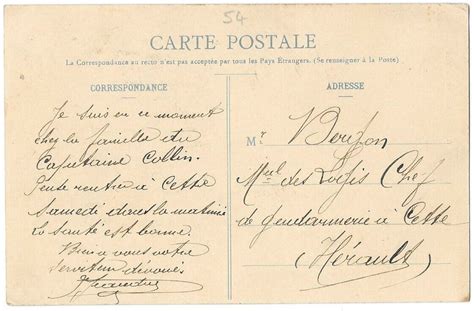 54
CARTE POSTALE
La Correspondance au recto n'est pas acceptée par tous les Pays Étrangers. (Se renseigner à la Poste)
CORRESPONDANCE
Je suis en ce moment
chez la famille du
Capitaine Collin.
Pense rentrer à Cette
samedi dans la matinée
La santé est bonne.
Bien à vous votre
serviteur dévoué
ADRESSE
Mr
Mal des Logis Chef
de Gendarmerie à Cette
(Hérault)